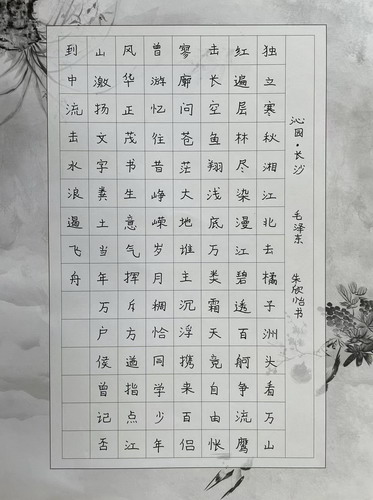 沁园·长沙 毛泽东 朱欣怡书
独立寒秋湘江北去橘子洲头看万山
红遍层林尽染漫江碧透百舸争流鹰
击长空鱼翔浅底万类霜天竞自由怅
寥廓问苍茫大地谁主沉浮携来百侣
曾游忆往昔峥嵘岁月稠恰同学少年
风华正茂书生意气挥斥方遒指点江
山激扬文字粪土当年万户侯曾记否
到中流击水浪遏飞舟